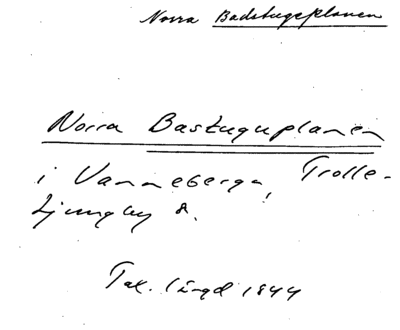 Norra Badstugeplanen
Norra Bastuguplanen
i Vanneberga, Trolle-
Ljungby s.
Tax. längd 1844